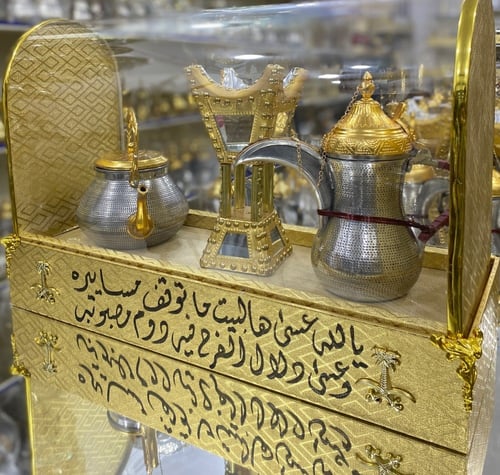 يالله عسى هالبيت ما توقف مساييره
وعسى دلال الفرح فيه دوم مصبوبة